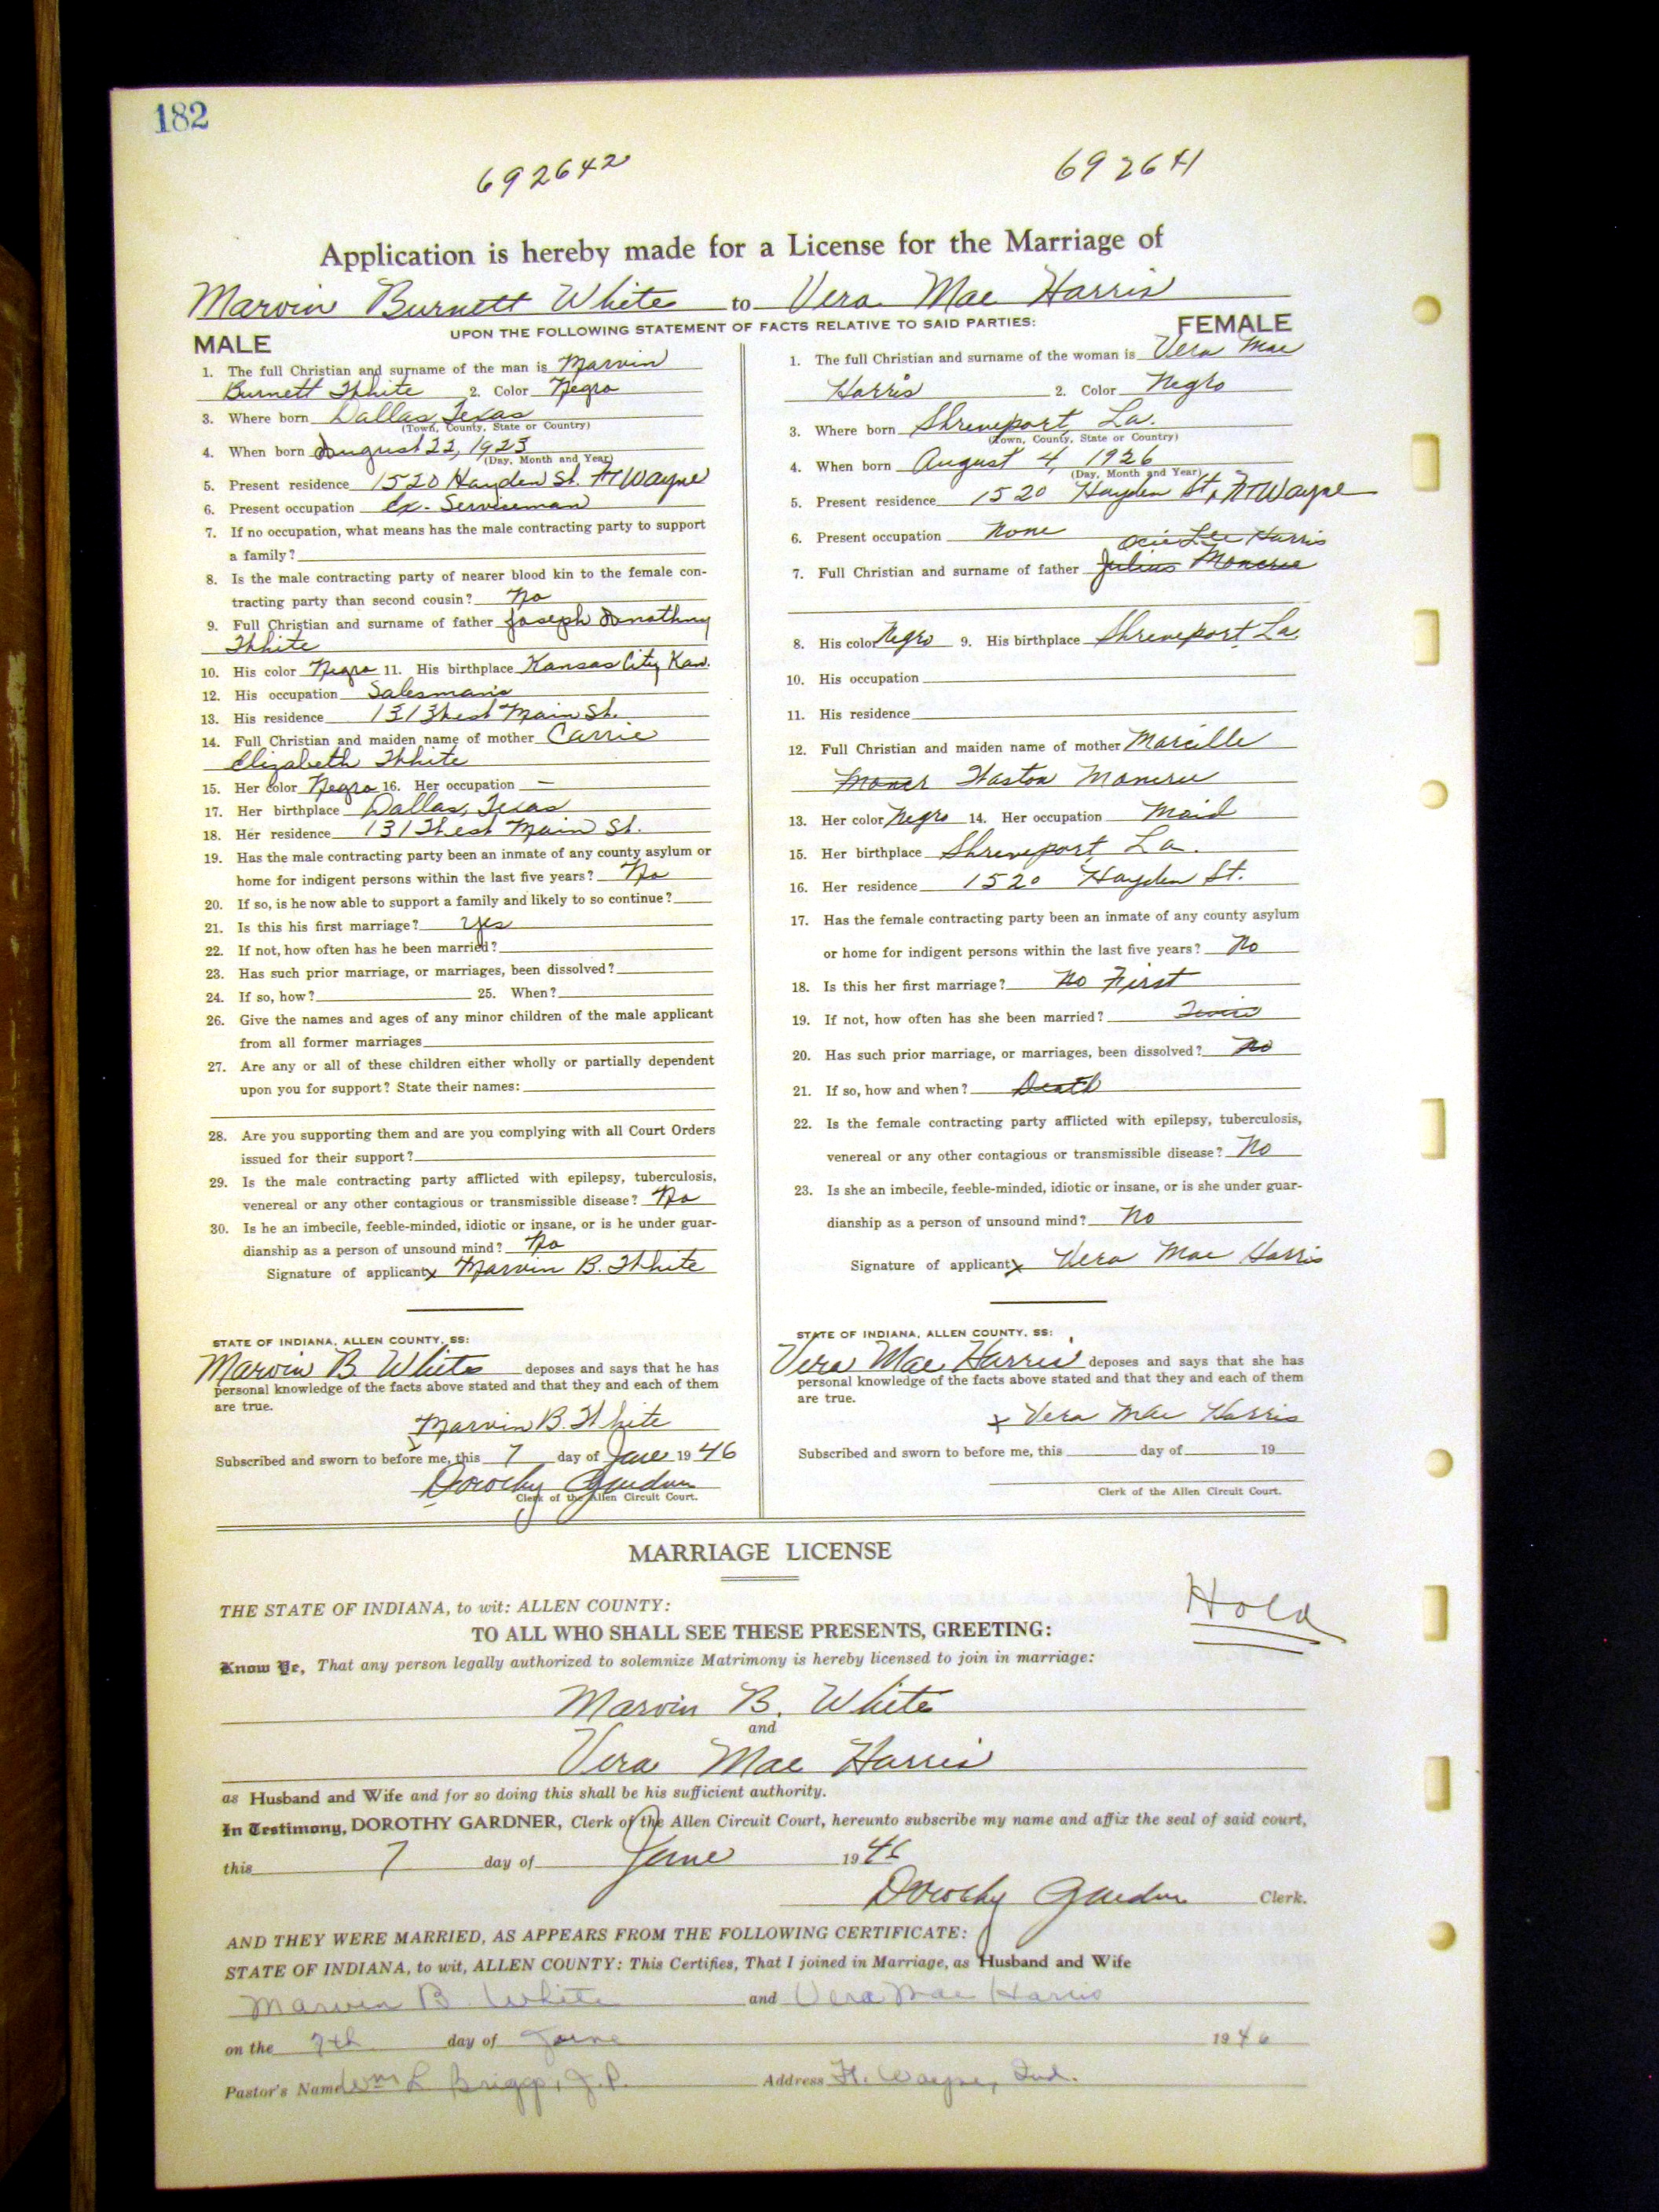 182
692642 692641
Application is hereby made for a License for the Marriage of
Marvin Burnett White to Vera Mae Harris
UPON THE FOLLOWING STATEMENT OF FACTS RELATIVE TO SAID PARTIES:
MALE
1. The full Christian and surname of the man is Marvin
Burnett White 2. Color Negro
3. Where born Dallas, Texas
(Town, County, State or Country)
4. When born August 22, 1923
(Day, Month and Year)
5. Present residence 1520 Hayden St. Ft Wayne
6. Present occupation Ex-Serviceman
7. If no occupation, what means has the male contracting party to support
a family?
8. Is the male contracting party of nearer blood kin to the female con-
tracting party than second cousin? No
9. Full Christian and surname of father Joseph
White
10. His color Negro 11. His birthplace Kansas City Kan.
12. His occupation Salesman
13. His residence 131 West Main St.
14. Full Christian and maiden name of mother Carrie
Elizabeth White
15. Her color Negro 16. Her occupation —
17. Her birthplace Dallas, Texas
18. Her residence 131 West Main St.
19. Has the male contracting party been an inmate of any county asylum or
home for indigent persons within the last five years? No
20. If so, is he now able to support a family and likely to so continue?
21. Is this his first marriage? Yes
22. If not, how often has he been married?
23. Has such prior marriage, or marriages, been dissolved?
24. If so, how? 25. When?
26. Give the names and ages of any minor children of the male applicant
from all former marriages
27. Are any or all of these children either wholly or partially dependent
upon you for support? State their names:
28. Are you supporting them and are you complying with all Court Orders
issued for their support?
29. Is the male contracting party afflicted with epilepsy, tuberculosis,
venereal or any other contagious or transmissible disease? No
30. Is he an imbecile, feeble-minded, idiotic or insane, or is he under guar-
dianship as a person of unsound mind? No
Signature of applicant x Marvin B. White
STATE OF INDIANA, ALLEN COUNTY, SS:
Marvin B. White deposes and says that he has
personal knowledge of the facts above stated and that they and each of them
are true.
Marvin B. White
Subscribed and sworn to before me, this 7 day of June 1946
Dorothy Gardner
Clerk of the Allen Circuit Court.
FEMALE
1. The full Christian and surname of the woman is Vera Mae
Harris 2. Color Negro
3. Where born Shreveport, La.
(Town, County, State or Country)
4. When born August 4, 1926
(Day, Month and Year)
5. Present residence 1520 Hayden St, Ft Wayne
6. Present occupation None
Ocie Lee Harris
7. Full Christian and surname of father Julius Moncrue
8. His color Negro 9. His birthplace Shreveport La.
10. His occupation
11. His residence
12. Full Christian and maiden name of mother Marcille
Moncr Haston Moncrue
13. Her color Negro 14. Her occupation Maid
15. Her birthplace Shreveport La.
16. Her residence 1520 Hayden St.
17. Has the female contracting party been an inmate of any county asylum
or home for indigent persons within the last five years? No
18. Is this her first marriage? No First
19. If not, how often has she been married? Twice
20. Has such prior marriage, or marriages, been dissolved? No
21. If so, how and when? Death
22. Is the female contracting party afflicted with epilepsy, tuberculosis,
venereal or any other contagious or transmissible disease? No
23. Is she an imbecile, feeble-minded, idiotic or insane, or is she under guar-
dianship as a person of unsound mind? No
Signature of applicant x Vera Mae Harris
STATE OF INDIANA, ALLEN COUNTY, SS:
Vera Mae Harris deposes and says that she has
personal knowledge of the facts above stated and that they and each of them
are true.
x Vera Mae Harris
Subscribed and sworn to before me, this day of 19
Clerk of the Allen Circuit Court.
MARRIAGE LICENSE
Hold
THE STATE OF INDIANA, to wit: ALLEN COUNTY:
TO ALL WHO SHALL SEE THESE PRESENTS, GREETING:
Know Ye, That any person legally authorized to solemnize Matrimony is hereby licensed to join in marriage:
Marvin B. White
and
Vera Mae Harris
as Husband and Wife and for so doing this shall be his sufficient authority.
In Testimony, DOROTHY GARDNER, Clerk of the Allen Circuit Court, hereunto subscribe my name and affix the seal of said court,
this 7 day of June 1946
Dorothy Gardner Clerk.
AND THEY WERE MARRIED, AS APPEARS FROM THE FOLLOWING CERTIFICATE:
STATE OF INDIANA, to wit, ALLEN COUNTY: This Certifies, That I joined in Marriage, as Husband and Wife
Marvin B. White and Vera Mae Harris
on the 7th day of June 1946
Pastor's Name Wm L Briggs, J.P. Address Ft. Wayne, Ind.